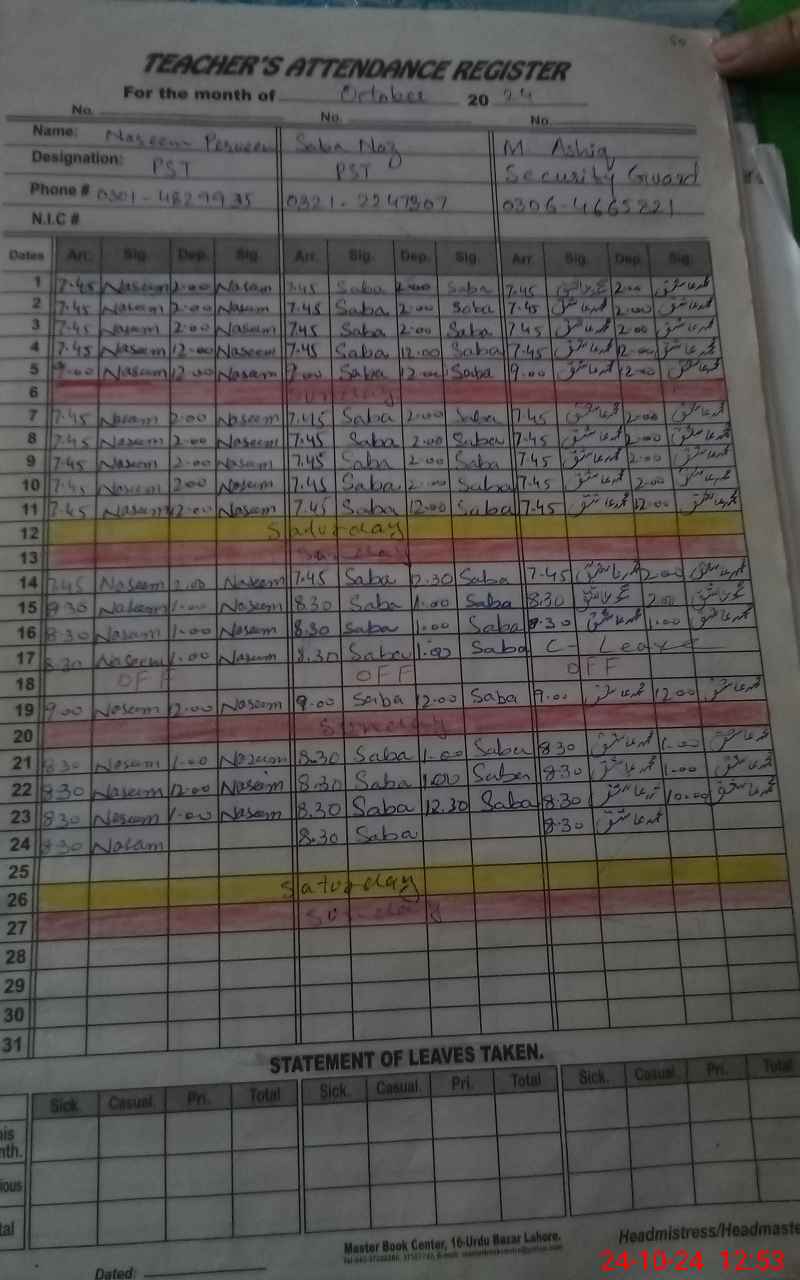 50
TEACHER'S ATTENDANCE REGISTER
For the month of October 20 24
No. No. No.
Name: Naseem Perveen Saba Naz M. Ashiq
Designation: PST PST Security Guard
Phone # 0301-4829935 0321-2247307 0306-4665821
N.I.C #
Dates Arr. Sig. Dep. Sig. Arr. Sig. Dep. Sig. Arr. Sig. Dep. Sig.
1 7.45 Naseem 2.00 Naseem 7.45 Saba 2.00 Saba 7.45 محمد عاشق 2.00 محمد عاشق
2 7.45 Naseem 2.00 Naseem 7.45 Saba 2.00 Saba 7.45 محمد عاشق 2.00 محمد عاشق
3 7.45 Naseem 2.00 Naseem 7.45 Saba 2.00 Saba 7.45 محمد عاشق 2.00 محمد عاشق
4 7.45 Naseem 12.00 Naseem 7.45 Saba 12.00 Saba 7.45 محمد عاشق 12.00 محمد عاشق
5 9.00 Naseem 12.00 Naseem 9.00 Saba 12.00 Saba 9.00 محمد عاشق 12.00 محمد عاشق
6 Sunday
7 7.45 Naseem 2.00 Naseem 7.45 Saba 2.00 Saba 7.45 محمد عاشق 2.00 محمد عاشق
8 7.45 Naseem 2.00 Naseem 7.45 Saba 2.00 Saba 7.45 محمد عاشق 2.00 محمد عاشق
9 7.45 Naseem 2.00 Naseem 7.45 Saba 2.00 Saba 7.45 محمد عاشق 2.00 محمد عاشق
10 7.45 Naseem 2.00 Naseem 7.45 Saba 2.00 Saba 7.45 محمد عاشق 2.00 محمد عاشق
11 7.45 Naseem 12.00 Naseem 7.45 Saba 12.00 Saba 7.45 محمد عاشق 12.00 محمد عاشق
12 Saturday
13 Sunday
14 7.45 Naseem 2.00 Naseem 7.45 Saba 2.30 Saba 7.45 محمد عاشق 2.00 محمد عاشق
15 8.30 Naseem 1.00 Naseem 8.30 Saba 1.00 Saba 8.30 محمد عاشق 2.00 محمد عاشق
16 8.30 Naseem 1.00 Naseem 8.30 Saba 1.00 Saba 8.30 محمد عاشق 1.00 محمد عاشق
17 8.30 Naseem 1.00 Naseem 8.30 Saba 1.00 Saba C-Leave
18 OFF OFF OFF
19 9.00 Naseem 12.00 Naseem 9.00 Saba 12.00 Saba 9.00 محمد عاشق 12.00 محمد عاشق
20 Sunday
21 8.30 Naseem 1.00 Naseem 8.30 Saba 1.00 Saba 8.30 محمد عاشق 1.00 محمد عاشق
22 8.30 Naseem 12.00 Naseem 8.30 Saba 1.00 Saba 8.30 محمد عاشق 1.00 محمد عاشق
23 8.30 Naseem 1.00 Naseem 8.30 Saba 12.30 Saba 8.30 محمد عاشق 10.00 محمد عاشق
24 8.30 Naseem 8.30 Saba 8.30 محمد عاشق
25
26 Saturday
27 Sunday
28
29
30
31
STATEMENT OF LEAVES TAKEN.
Sick. Casual. Pri. Total Sick. Casual. Pri. Total Sick. Casual. Pri. Total
Master Book Center, 16-Urdu Bazar Lahore.
Headmistress/Headmaste
Dated:
24-10-24 12:53